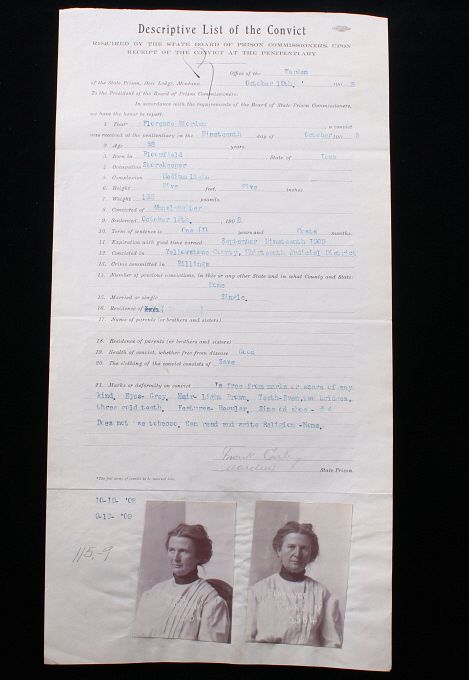 Descriptive List of the Convict
REQUIRED BY THE STATE BOARD OF PRISON COMMISSIONERS, UPON
RECEIPT OF THE CONVICT AT THE PENITENTIARY
Office of the Warden
of the State Prison, Deer Lodge, Montana, October 19th, 190 8
To the President of the Board of Prison Commissioners:
In accordance with the requirements of the Board of State Prison Commissioners,
we have the honor to report:
1. That Florence Riordan a convict
was received at the penitentiary on the Nineteenth day of October 190 8
2. Age years.
3. Born in Bloomfield, State of Iowa
4. Occupation Storekeeper
5. Complexion Medium Light
6. Height Five feet, Five inches.
7. Weight pounds.
8. Convicted of Manslaughter
9. Sentenced October 190 8.
10. Term of sentence is One (1) years and Costs months.
11. Expiration with good time earned September Nineteenth 1909
12. Convicted in Yellowstone County, Thirteenth Judicial District
13. Crime committed in Billings
14. Number of previous convictions, in this or any other State and in what County and State:
None
15. Married or single Single.
16. Residence of
17. Name of parents (or brothers and sisters)
18. Residence of parents (or brothers and sisters)
19. Health of convict, whether free from disease Good
20. The clothing of the convict consists of
21. Marks or deformity on convict Is free from marks or scars of any
kind. Eyes- Grey. Hair- Light Brown. Teeth-Even, two bridges,
three gold teeth. Features- Regular. Size of shoe -
Does not use tobacco. Can read and write Religion -None.
Frank Conley
Warden State Prison.
10-19- '08
9-19- '09
115-9